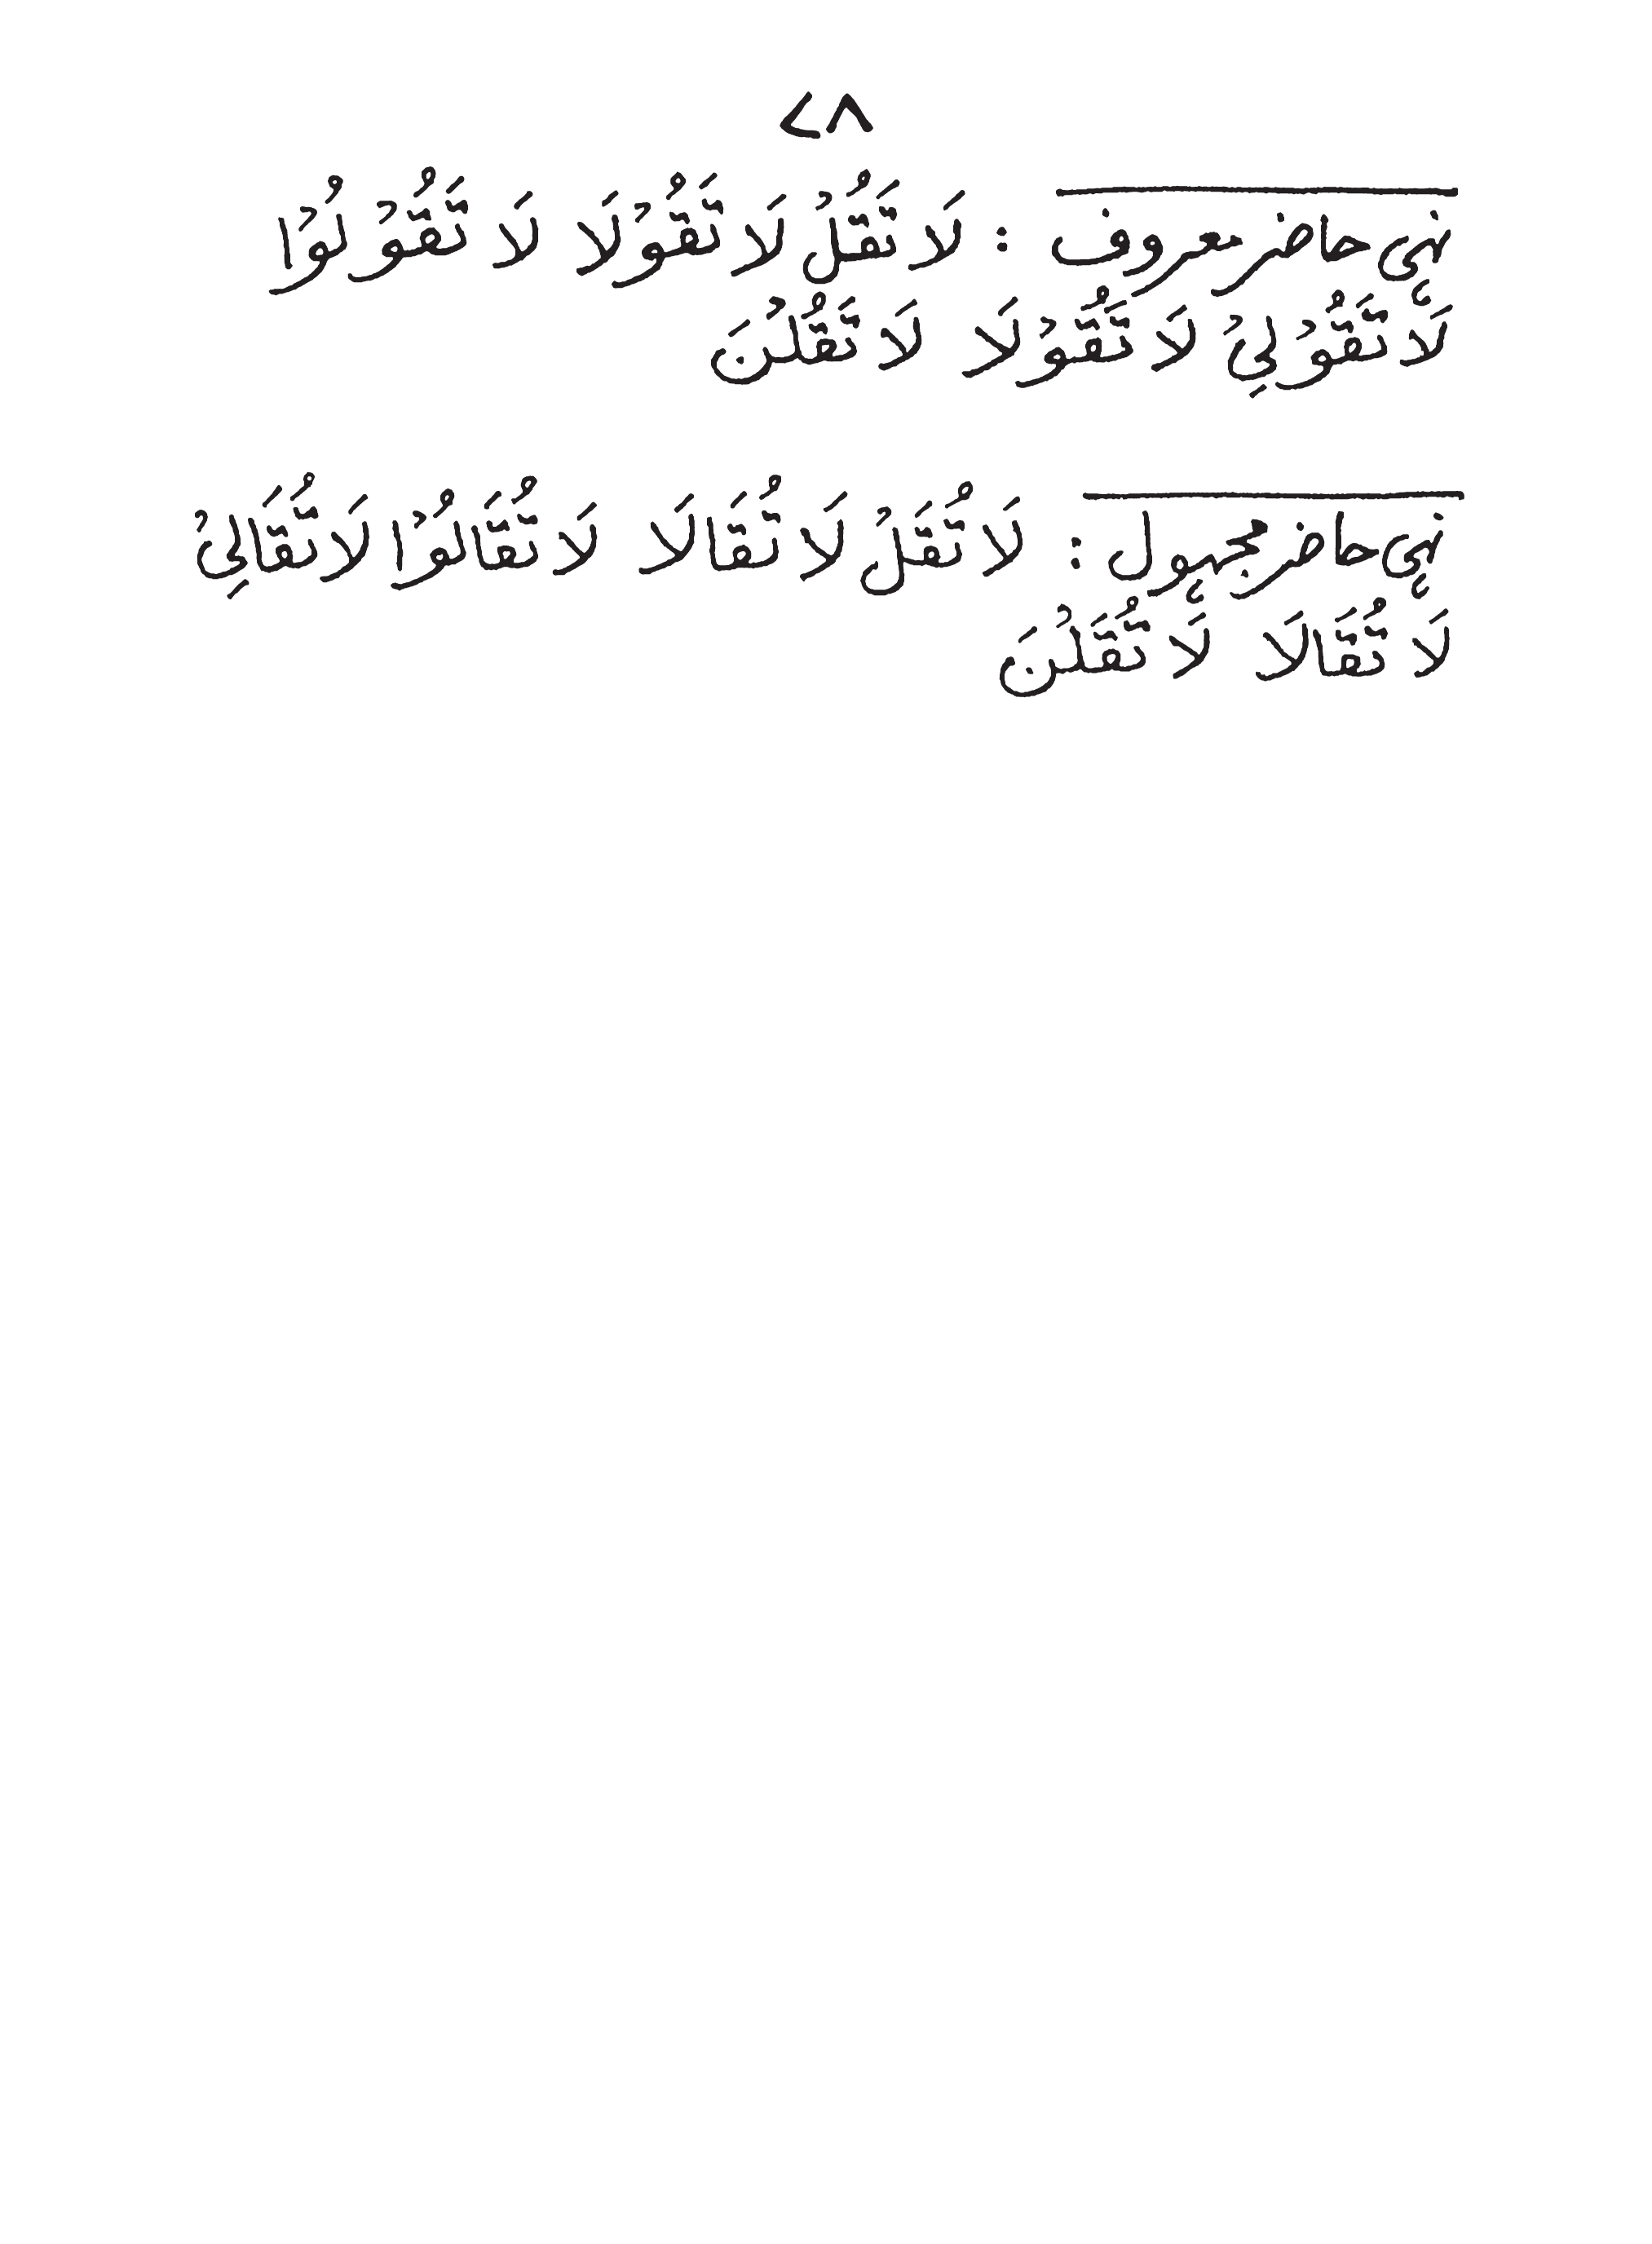 ۷۸
نہی حاضر معروف : لَا تَقُلْ لَا تَقُوْلَا لَا تَقُوْلُوْا
لَا تَقُوْلِيْ لَا تَقُوْلَا لَا تَقُلْنَ
نہی حاضر مجہول : لَا تُقَلْ لَا تُقَالَا لَا تُقَالُوْا لَا تُقَالِيْ
لَا تُقَالَا لَا تُقَلْنَ